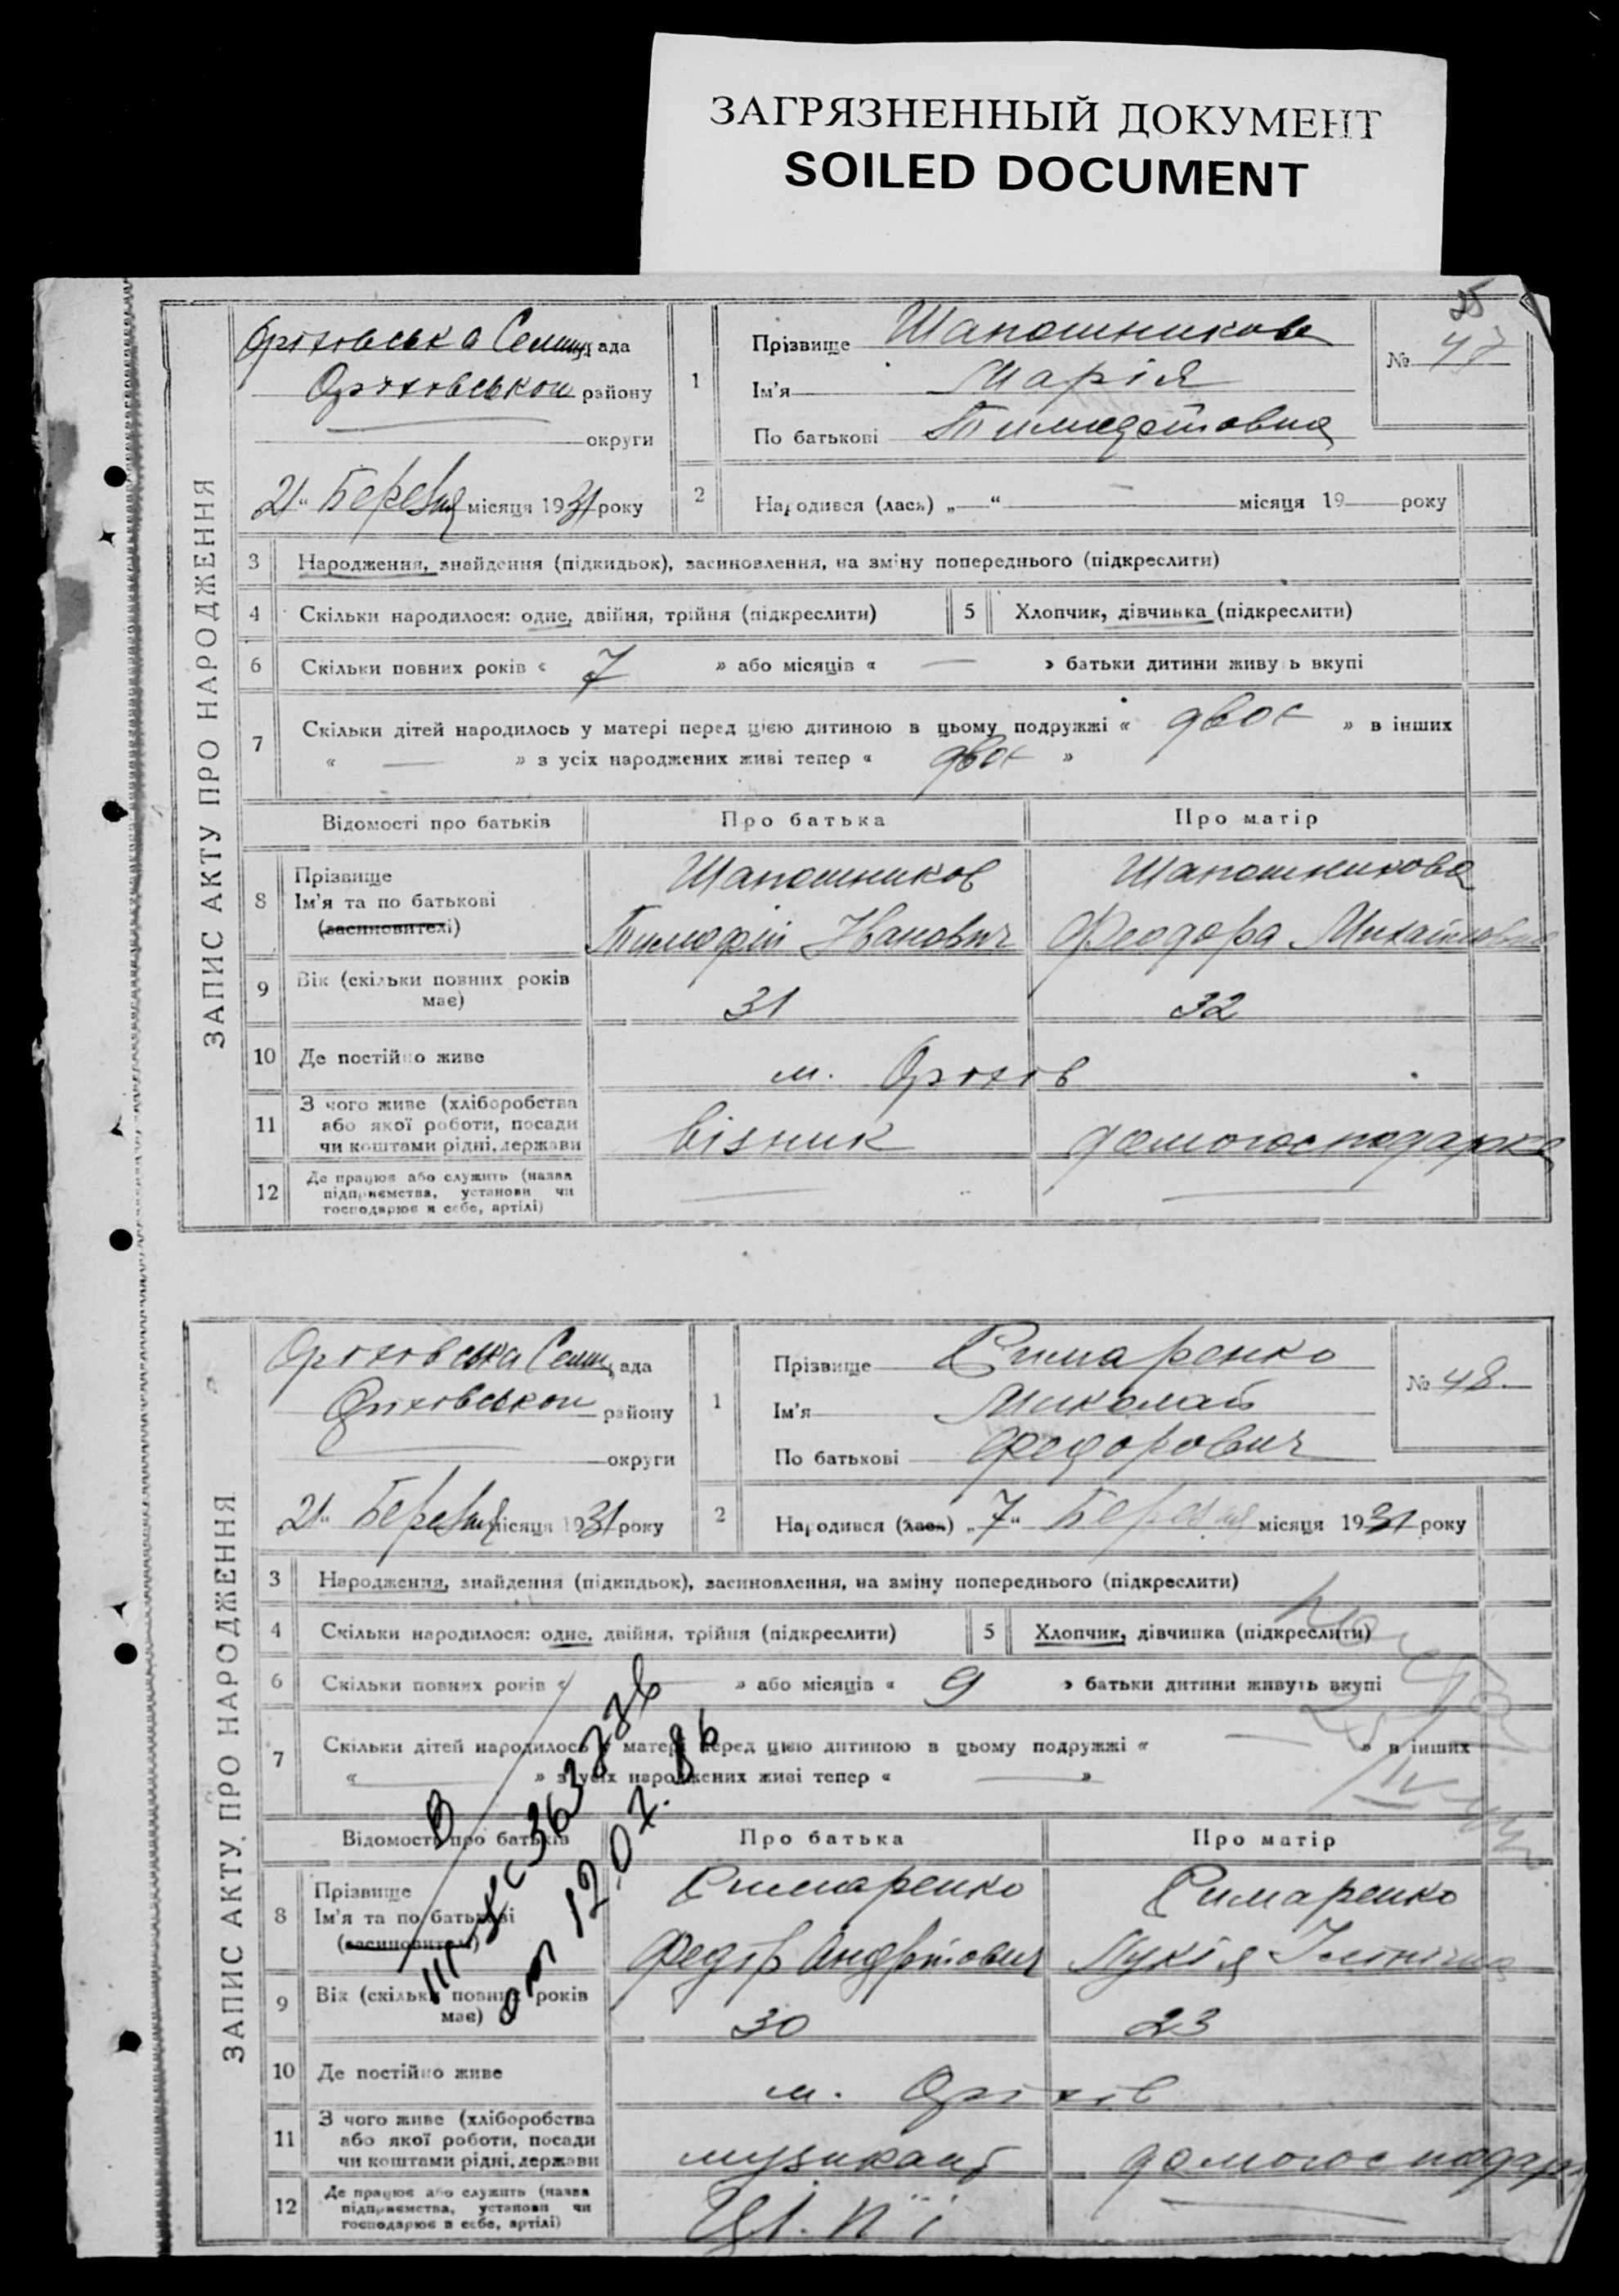 ЗАГРЯЗНЕННЫЙ ДОКУМЕНТ
SOILED DOCUMENT
25
ЗАПИС АКТУ ПРО НАРОДЖЕННЯ
Оріховська Селищ рада
Оріховського району
округи
21 " Березня місяця 1931 року
1
Прізвище Шапошникова
Ім'я Марія
По батькові Тимофіївна
№ 47
2
Народився (лась) „—“ — місяця 19— року
3 Народження, знайдення (підкидьок), засиновлення, на зміну попереднього (підкреслити)
4 Скільки народилося: одне, двійня, трійня (підкреслити)
5 Хлопчик, дівчинка (підкреслити)
6 Скільки повних років « 7 » або місяців « — » батьки дитини живуть вкупі
7 Скільки дітей народилось у матері перед цією дитиною в цьому подружжі « двоє » в інших
« — » з усіх народжених живі тепер « двоє »
Відомості про батьків Про батька Про матір
8 Прізвище Шапошников Шапошникова
Ім'я та по батькові
(засиновителі) Тимофій Іванович Феодора Михайловна
9 Вік (скільки повних років
має) 31 32
10 Де постійно живе м. Оріхів
11 З чого живе (хліборобства
або якої роботи, посади візник домогосподарка
чи коштами рідні, держави
12 Де працює або служить (назва
підприємства, установи чи — —
господарює в себе, артілі)
ЗАПИС АКТУ ПРО НАРОДЖЕННЯ
Оріховська Селищ рада
Оріховського району
округи
21 " Березня місяця 1931 року
1
Прізвище Симаренко
Ім'я Миколай
По батькові Федорович
№ 48
2
Народився (лась) „7“ Березня місяця 1931 року
3 Народження, знайдення (підкидьок), засиновлення, на зміну попереднього (підкреслити)
4 Скільки народилося: одне, двійня, трійня (підкреслити)
5 Хлопчик, дівчинка (підкреслити)
6 Скільки повних років « — » або місяців « 9 » батьки дитини живуть вкупі
7 Скільки дітей народилось у матері перед цією дитиною в цьому подружжі « — » в інших
« — » з усіх народжених живі тепер « — »
от 12.07.86
Відомості про батьків Про батька Про матір
8 Прізвище Симаренко Симаренко
Ім'я та по батькові
(засиновителі) Федір Андрійович Лукія
9 Вік (скільки повних років
має) 30 23
10 Де постійно живе м. Оріхів
11 З чого живе (хліборобства
або якої роботи, посади музикант домогосподар
чи коштами рідні, держави
12 Де працює або служить (назва
підприємства, установи чи —
господарює в себе, артілі)